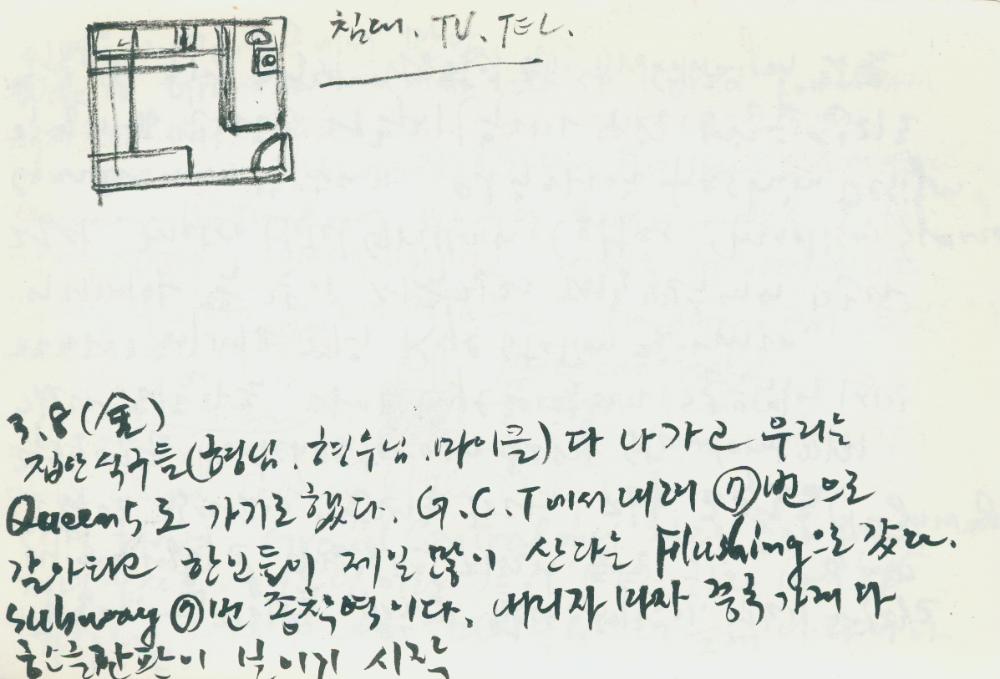 침대. TV. TEL.
3.8(金)
집안식구들(형님.형수님.마이클) 다 나가고 우리는
Queens로 가기로 했다. G.C.T에서 내려 ⑦번으로
갈아타고 한인들이 제일 많이 산다는 Flushing으로 갔다.
subway ⑦번 종착역이다. 내리자 마자 중국가게와
한글간판이 보이기 시작